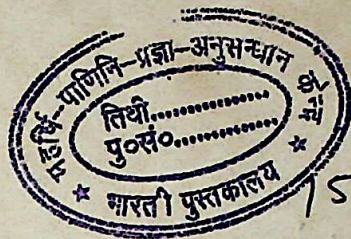 महर्षि-पाणिनि-प्रज्ञा-अनुसन्धान केन्द्र
तिथी..................
पु०सं०................
* भारती पुस्तकालय *
15